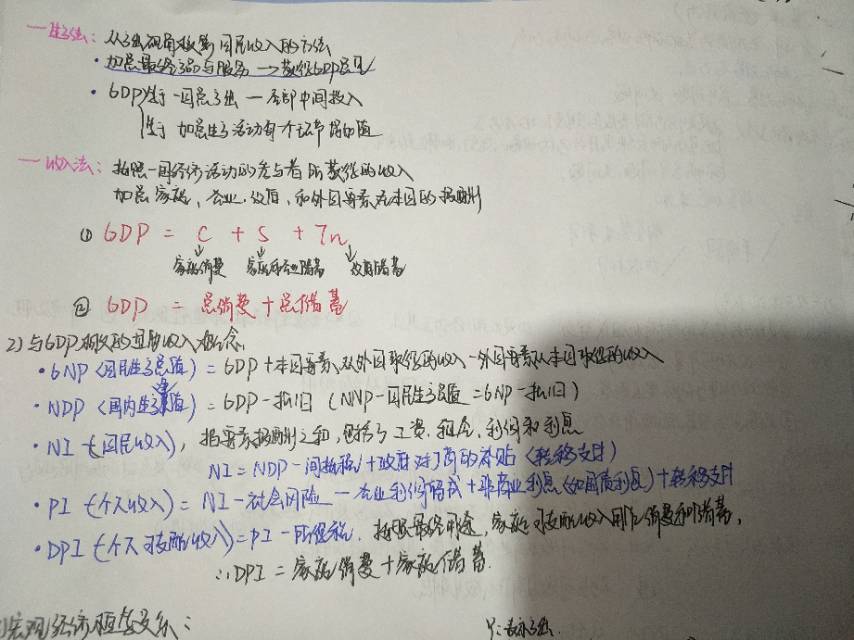 一生产法：从生产视角核算国民收入的方法
·加总最终产品与服务→获得GDP总量
·GDP 生于一国总产出－全部中间投入
生于 加总生产活动每个环节增加值
一收入法：按照一国经济活动的参与者所获得的收入
加总家庭、企业、政府、和外国要素在本国的报酬
① GDP = C + S + Tn
家庭消费 家庭和企业储蓄 政府储蓄
② GDP = 总消费＋总储蓄
2）与GDP相关的国民收入概念
·GNP（国民生产总值）= GDP＋本国要素从外国取得的收入－外国要素从本国取得的收入
·NDP（国内生产净值）= GDP－折旧（NNP－国民生产净值=GNP－折旧）
·NI－（国民收入），指要素报酬之和，包括了工资、租金、利润和利息
NI=NDP－间接税＋政府对厂商的补贴（转移支付）
·PI－（个人收入）= NI－社会保险－企业利润留成＋非商业利息（如国债利息）＋转移支付
·DPI－（个人可支配收入）=PI－所得税，按照最终用途，家庭可支配收入用作消费和储蓄，
∴DPI = 家庭消费＋家庭储蓄.
宏观经济恒等关系：
Y：表示产出.